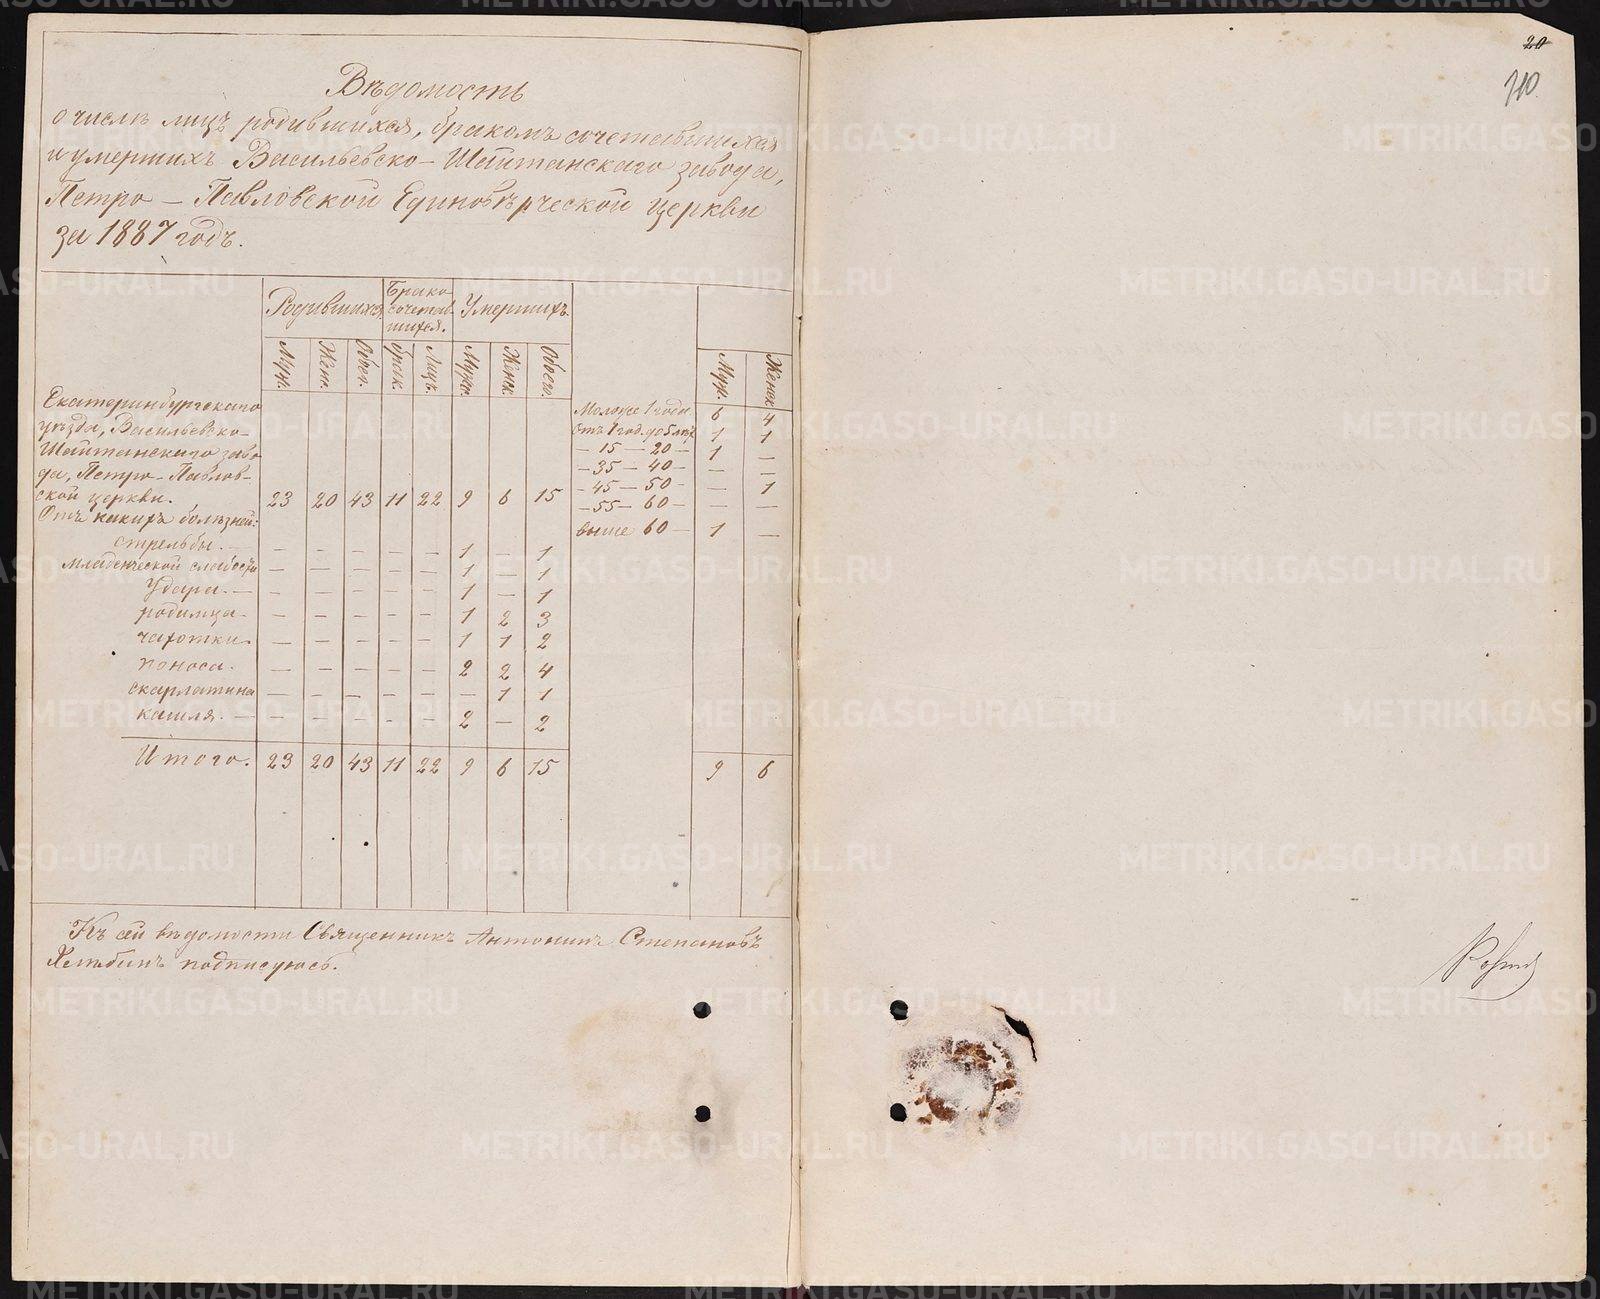 Вѣдомость
о числѣ лицъ родившихся, бракомъ сочетавшихся
и умершихъ Васильевско-Шайтанскаго завода,
Петро-Павловской Единовѣрческой церкви
за 1887 годъ.
Родившихся. Брако-сочетав-шихся. Умершихъ.
Муж. Жен. Обоег. брак. Лицъ. Мужс. Женск. Обоего. Муж. Женск.
Екатеринбургскаго Моложе 1 года. 6 4
уѣзда, Васильевско- Отъ 1 год. до 5 лѣт 1 1
Шайтанскаго заво- — 15 — 20 — 1 —
да, Петро-Павлов- — 35 — 40 — — —
ской церкви. 23 20 43 11 22 9 6 15 — 45 — 50 — — 1
Отъ какихъ болѣзней: — 55 — 60 — — —
стрельбы. — — — — — — 1 — 1 выше 60 — 1 —
младенческой слабости — — — — — 1 — 1
Удара. — — — — — — 1 — 1
родимца — — — — — 1 2 3
чахотки — — — — — 1 1 2
поноса. — — — — — 2 2 4
скарлатина — — — — — — 1 1
кашля. — — — — — — 2 — 2
Итого. 23 20 43 11 22 9 6 15 9 6
Къ сей вѣдомости Священникъ Антонинъ Степановъ
Хлѣбинъ подписуюсь.
20
METRIKI.GASO-URAL.RU